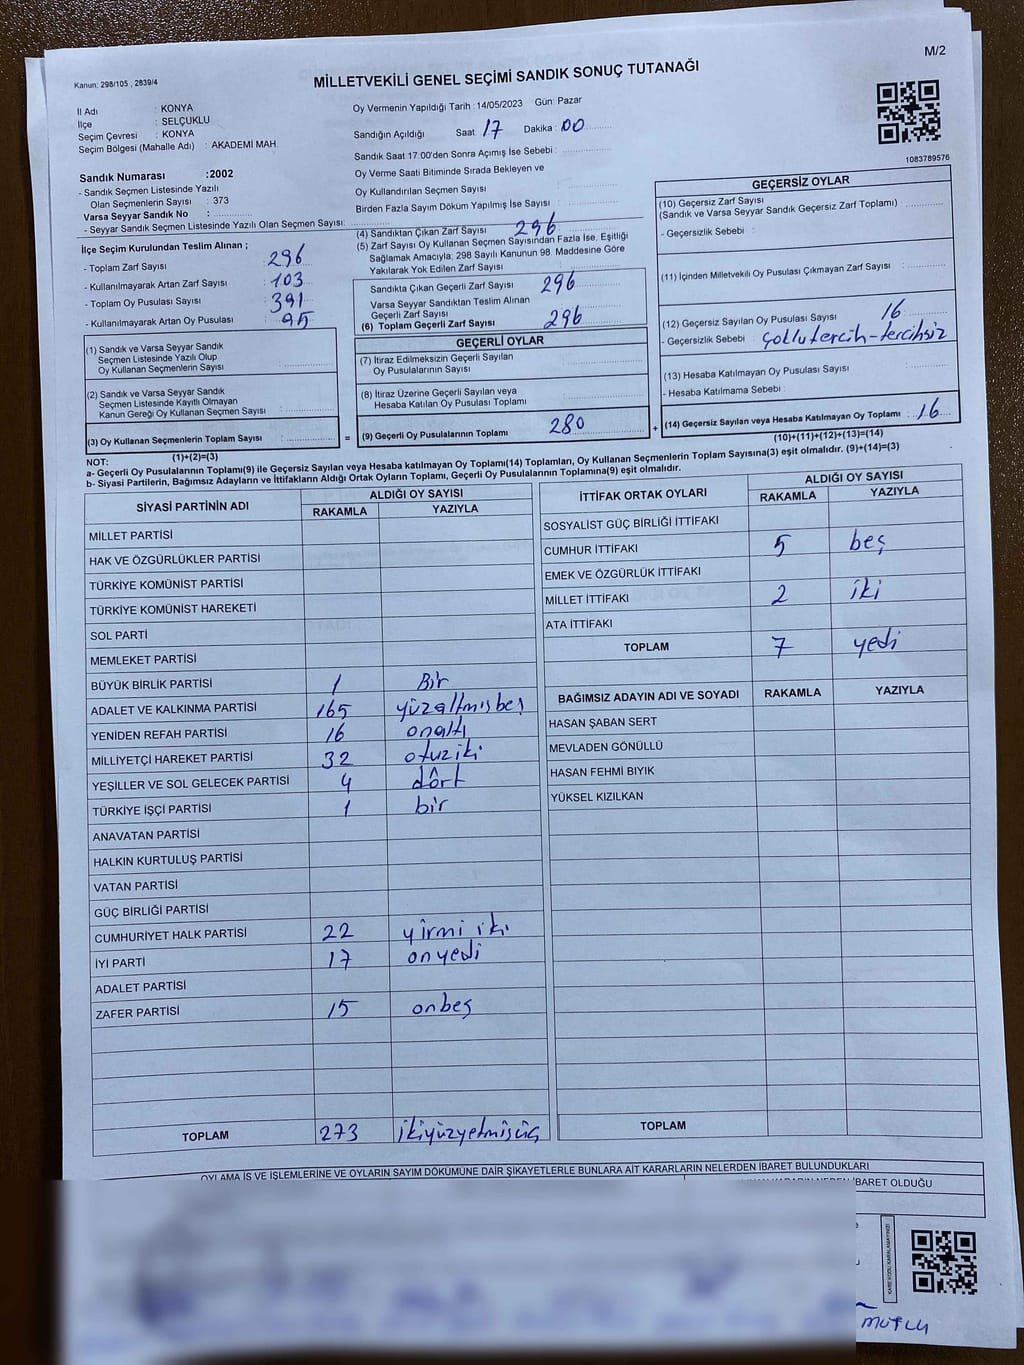 M/2
Kanun: 298/105 , 2839/4
MİLLETVEKİLİ GENEL SEÇİMİ SANDIK SONUÇ TUTANAĞI
İl Adı : KONYA
İlçe : SELÇUKLU
Seçim Çevresi : KONYA
Seçim Bölgesi (Mahalle Adı) : AKADEMİ MAH.
Sandık Numarası :2002
- Sandık Seçmen Listesinde Yazılı
Olan Seçmenlerin Sayısı : 373
Varsa Seyyar Sandık No :
- Seyyar Sandık Seçmen Listesinde Yazılı Olan Seçmen Sayısı:
Oy Vermenin Yapıldığı Tarih : 14/05/2023 Gün: Pazar
Sandığın Açıldığı Saat 17 Dakika : 00
Sandık Saat 17:00'den Sonra Açımış İse Sebebi :
Oy Verme Saati Bitiminde Sırada Bekleyen ve
Oy Kullandırılan Seçmen Sayısı :
Birden Fazla Sayım Döküm Yapılmış İse Sayısı :
1083789576
İlçe Seçim Kurulundan Teslim Alınan ;
- Toplam Zarf Sayısı : 296
- Kullanılmayarak Artan Zarf Sayısı : 103
- Toplam Oy Pusulası Sayısı : 391
- Kullanılmayarak Artan Oy Pusulası : 95
(1) Sandık ve Varsa Seyyar Sandık
Seçmen Listesinde Yazılı Olup
Oy Kullanan Seçmenlerin Sayısı :
(2) Sandık ve Varsa Seyyar Sandık
Seçmen Listesinde Kayıtlı Olmayan
Kanun Gereği Oy Kullanan Seçmen Sayısı :
(3) Oy Kullanan Seçmenlerin Toplam Sayısı :
(1)+(2)=(3)
(4) Sandıktan Çıkan Zarf Sayısı : 296
(5) Zarf Sayısı Oy Kullanan Seçmen Sayısından Fazla İse, Eşitliği
Sağlamak Amacıyla; 298 Sayılı Kanunun 98. Maddesine Göre
Yakılarak Yok Edilen Zarf Sayısı :
Sandıkta Çıkan Geçerli Zarf Sayısı : 296
Varsa Seyyar Sandıktan Teslim Alınan
Geçerli Zarf Sayısı :
(6) Toplam Geçerli Zarf Sayısı : 296
GEÇERLİ OYLAR
(7) İtiraz Edilmeksizin Geçerli Sayılan
Oy Pusulalarının Sayısı :
(8) İtiraz Üzerine Geçerli Sayılan veya
Hesaba Katılan Oy Pusulası Toplamı :
= (9) Geçerli Oy Pusulalarının Toplamı : 280
GEÇERSİZ OYLAR
(10) Geçersiz Zarf Sayısı
(Sandık ve Varsa Seyyar Sandık Geçersiz Zarf Toplamı) :
- Geçersizlik Sebebi :
(11) İçinden Milletvekili Oy Pusulası Çıkmayan Zarf Sayısı :
(12) Geçersiz Sayılan Oy Pusulası Sayısı : 16
- Geçersizlik Sebebi : çoklu tercih-tercihsiz
(13) Hesaba Katılmayan Oy Pusulası Sayısı :
- Hesaba Katılmama Sebebi :
+ (14) Geçersiz Sayılan veya Hesaba Katılmayan Oy Toplamı : 16
(10)+(11)+(12)+(13)=(14)
NOT:
a- Geçerli Oy Pusulalarının Toplamı(9) ile Geçersiz Sayılan veya Hesaba katılmayan Oy Toplamı(14) Toplamları, Oy Kullanan Seçmenlerin Toplam Sayısına(3) eşit olmalıdır. (9)+(14)=(3)
b- Siyasi Partilerin, Bağımsız Adayların ve İttifakların Aldığı Ortak Oyların Toplamı, Geçerli Oy Pusulalarının Toplamına(9) eşit olmalıdır.
SİYASİ PARTİNİN ADI ALDIĞI OY SAYISI
RAKAMLA YAZIYLA
MİLLET PARTİSİ
HAK VE ÖZGÜRLÜKLER PARTİSİ
TÜRKİYE KOMÜNİST PARTİSİ
TÜRKİYE KOMÜNİST HAREKETİ
SOL PARTİ
MEMLEKET PARTİSİ
BÜYÜK BİRLİK PARTİSİ 1 Bir
ADALET VE KALKINMA PARTİSİ 165 yüzaltmışbeş
YENİDEN REFAH PARTİSİ 16 onaltı
MİLLİYETÇİ HAREKET PARTİSİ 32 otuziki
YEŞİLLER VE SOL GELECEK PARTİSİ 4 dört
TÜRKİYE İŞÇİ PARTİSİ 1 bir
ANAVATAN PARTİSİ
HALKIN KURTULUŞ PARTİSİ
VATAN PARTİSİ
GÜÇ BİRLİĞİ PARTİSİ
CUMHURİYET HALK PARTİSİ 22 yirmi iki
İYİ PARTİ 17 onyedi
ADALET PARTİSİ
ZAFER PARTİSİ 15 onbeş
TOPLAM 273 ikiyüzyetmişüç
İTTİFAK ORTAK OYLARI ALDIĞI OY SAYISI
RAKAMLA YAZIYLA
SOSYALİST GÜÇ BİRLİĞİ İTTİFAKI
CUMHUR İTTİFAKI 5 beş
EMEK VE ÖZGÜRLÜK İTTİFAKI
MİLLET İTTİFAKI 2 iki
ATA İTTİFAKI
TOPLAM 7 yedi
BAĞIMSIZ ADAYIN ADI VE SOYADI RAKAMLA YAZIYLA
HASAN ŞABAN SERT
MEVLADEN GÖNÜLLÜ
HASAN FEHMİ BIYIK
YÜKSEL KIZILKAN
TOPLAM
OYLAMA İŞ VE İŞLEMLERİNE VE OYLARIN SAYIM DÖKÜMÜNE DAİR ŞİKAYETLERLE BUNLARA AİT KARARLARIN NELERDEN İBARET BULUNDUKLARI
İBARET OLDUĞU
KARE KODU KARALAMAYINIZ!
MUTLU